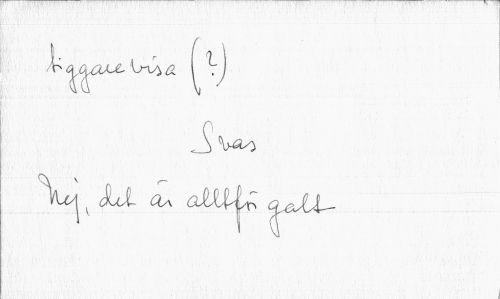 tiggarevisa (?)
Svar
Nej, det är alltför galt